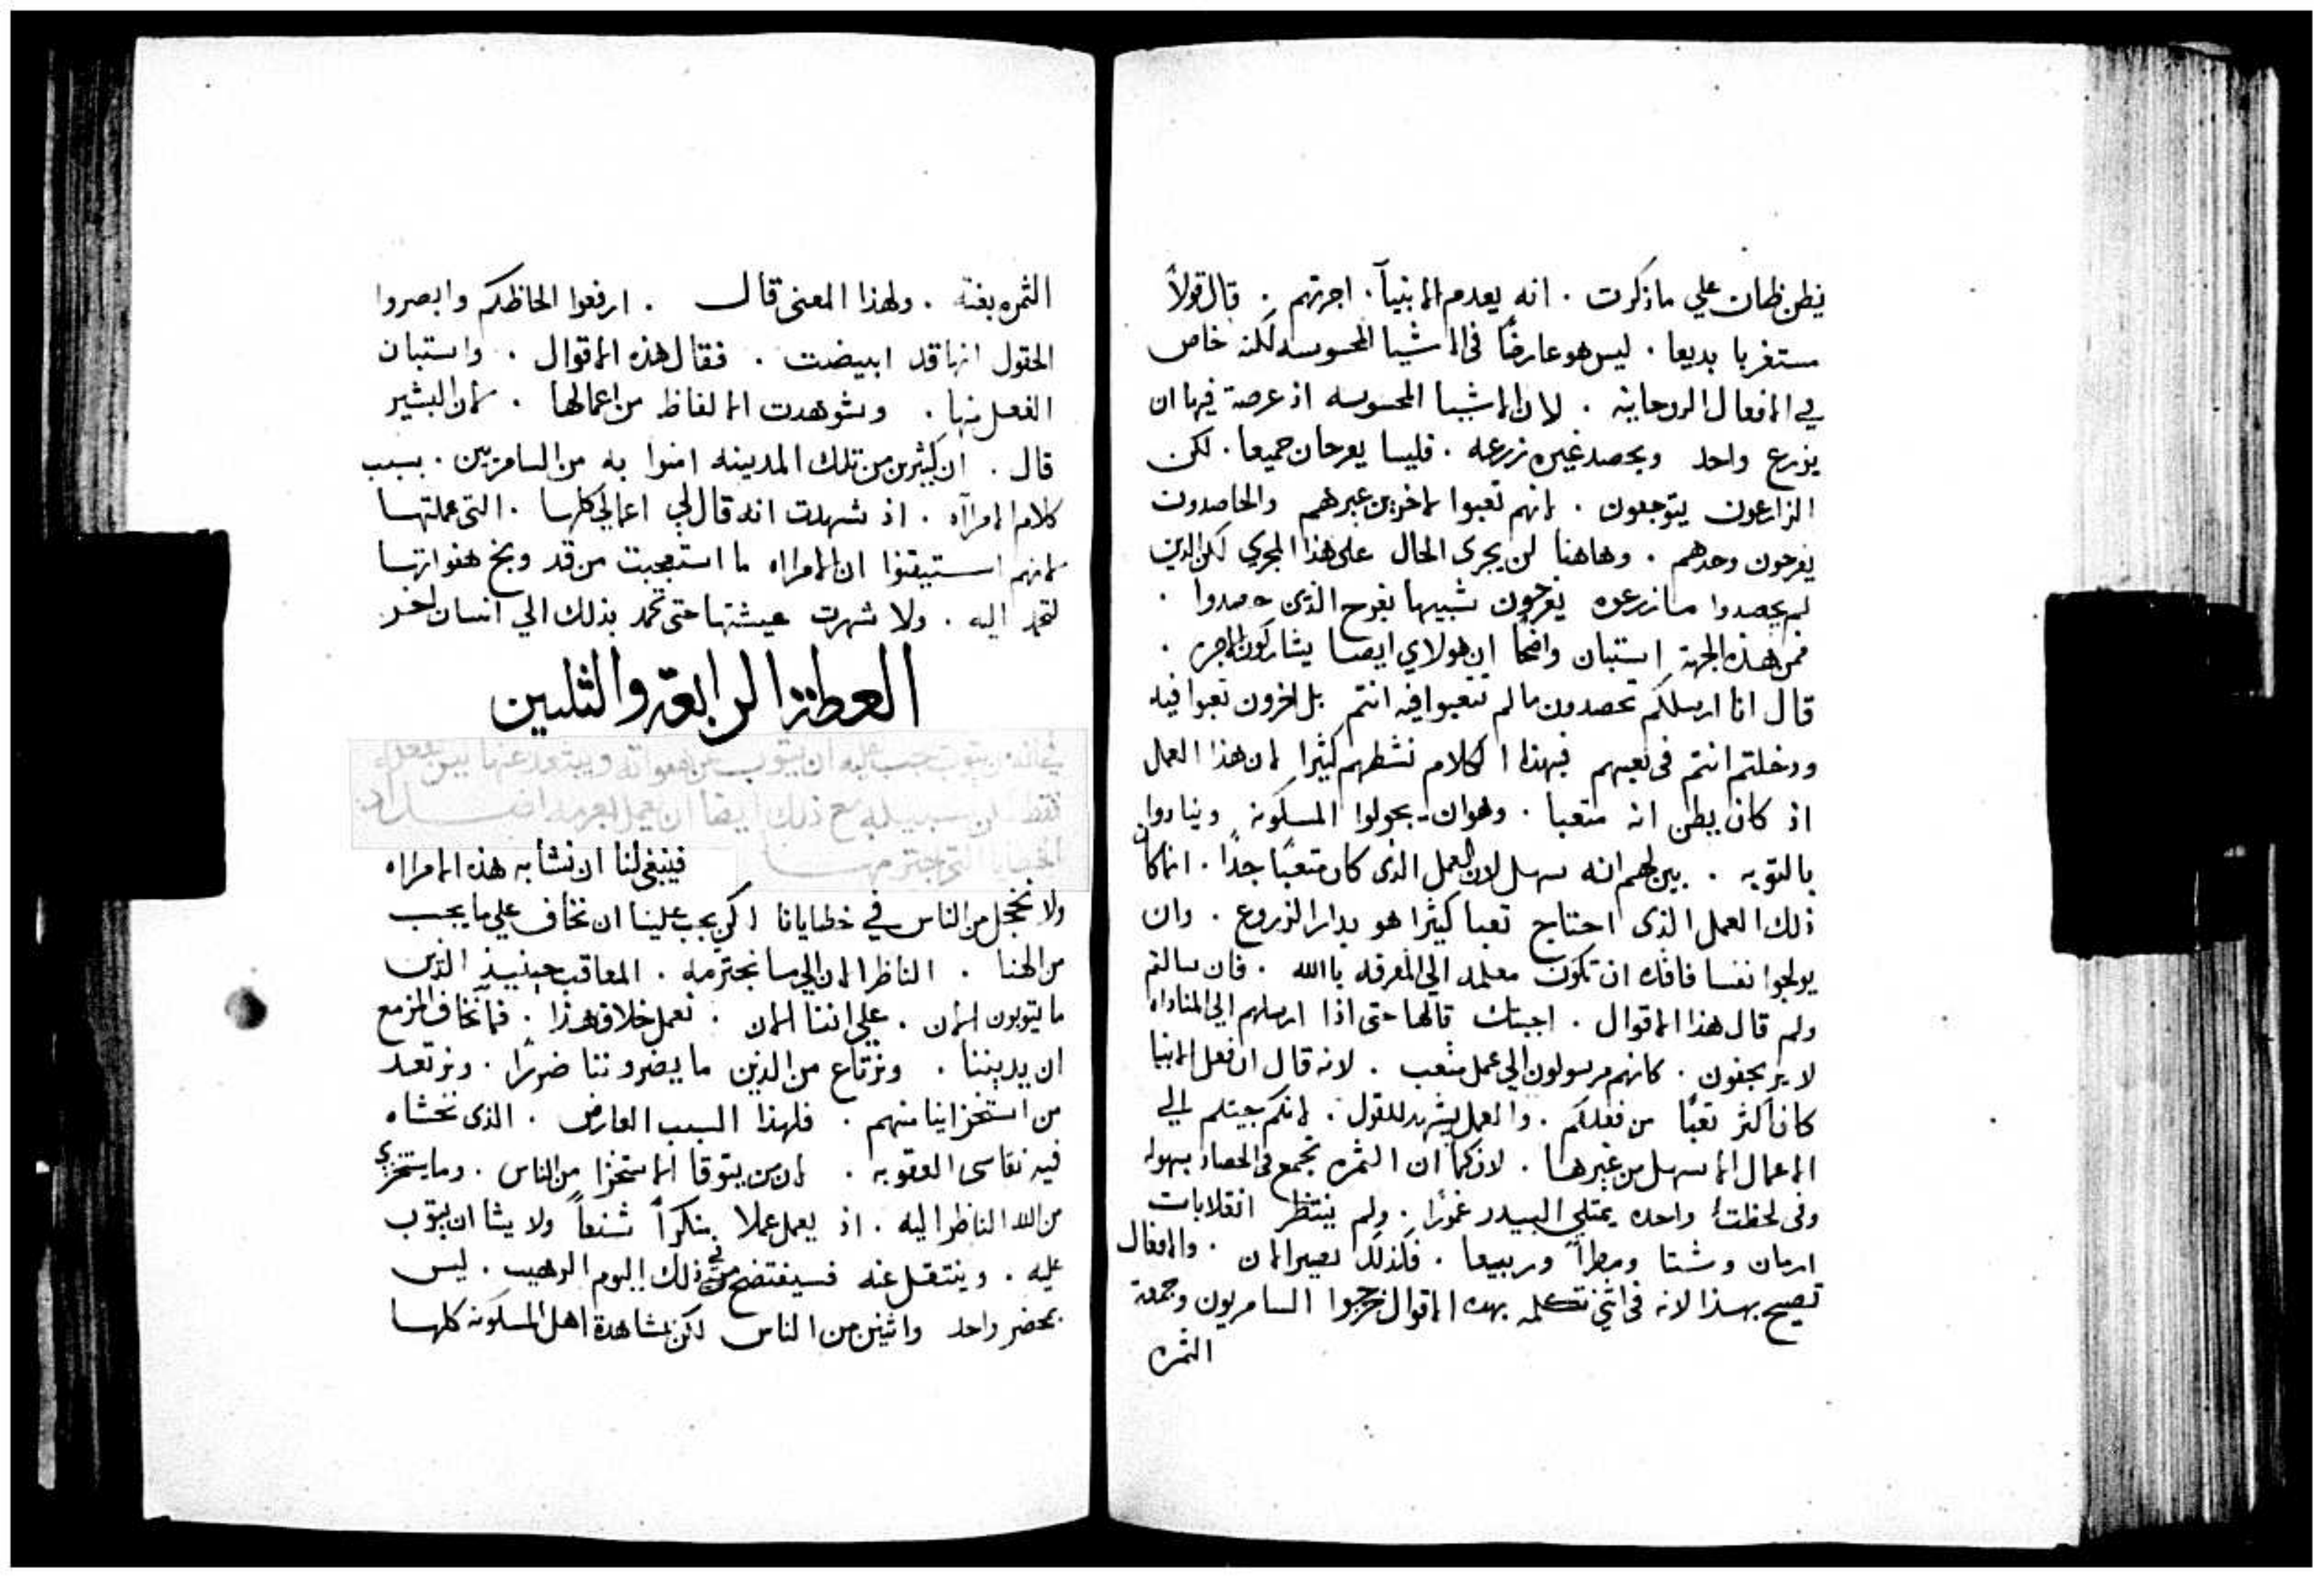 يظن ظان علي ما ذكرت . انه يعدم الانبيآ . اجرتهم . قال قولاً
مستغربا بديعا . ليس هو عارضاً فى الاشيا المحسوسه لكنه خاص
في الافعال الروحانيه . لان الاشيا المحسوسه اذ عرصة فيها ان
يزرع واحد ويحصد غيره زرعه . فليسا يفرحان جميعا . لكن
الزارعون يتوجعون . لانهم تعبوا لاخرين غيرهم والحاصدون
يفرحون وحدهم . وهاهنا لن يجرى الحال على هذا المجري لكن الدين
لم يحصدوا ما زرعوه يفرحون شبيها بفرح الذين حصدوا .
فمن هذه الجهة استبان واضحاً ان هولاي ايضا يشاركون الاجره .
قال انا ارسلكم تحصدون ما لم تتعبوا فيه انتم بل اخرون تعبوا فيه
ودخلتم انتم فى تعبهم فبهذا الكلام نشطهم كثيرا لان هذا العمل
اذ كان يظن انه متعبا . وهو ان يجولوا المسكونه وينادوا
بالتوبه . بين لهم انه سهل لان العمل الذى كان متعبًا جدًا . انما كان
ذلك العمل الذى احتاج تعبا كيثرا هو بدار الزروع . وان
يولجوا نفسا فاقده ان تكون معلمه الي المعرفه باالله . فان سالتم
ولم قال هذا الاقوال . اجبتك قالها حتى اذا ارسلهم الي المناداه
لا يرتجفون . كانهم مرسولون الي عمل متعب . لانه قال ان فعل الانبيا
كان اكثر تعبًا من فعلكم . والعمل يشهد للقول . لانكم جيتم الي
الاعمال الاسهل من غيرها . لان كما ان الثمره تجمع فى الحصاد بسهوله
وفى لحظت واحده يمتلي البيدر غمورًا . ولم ينتظر انقلابات
ازمان وشتا ومطراً وربيعا . فكذلك يصير الان . والافعال
تصيح بهذا لانه فى اثني تكلمه بهده الاقوال خرجوا السامريون وجمعة
الثمره
الثمره بغتة . ولهذا المعنى قال . ارفعوا الحاظكم وابصروا
الحقول انها قد ابيضت . فقال هذه الاقوال . واستبان
الفعل منها . وشوهدت الالفاظ من اعمالها . لان البشير
قال . ان كيثرين من تلك المدينه امنوا به من السامريين . بسبب
كلام الامرآاه . اذ شهدت انه قال لي اعمالي كلها . التى عملتها
لانهم استيقنوا ان الامراه ما استعجبت من قد وبخ هفواتها
لتحمد اليه . ولا شهرت عيشتها حتى تحمد بذلك الي انسان اخر
العظة الرابعة والثلثين
في ان يتوب يجب عليه ان يتوب عن هفواته ويبتعد عنها
فقط لن سبيله مع ذلك ايضا ان يعمل
الخطايا التى اجترمها
فينبغى لنا ان نشابه هذه الامراه
ولا نخجل من الناس في خطايانا لكن يجب علينا ان نخاف علي ما يجب
من الهنا . الناظر الان الي ما نجترمه . المعاقب حينيذ الذين
ما يتوبون الان . علي اننا الان . نعمل خلاق هذا . فما نخاف المزمع
ان يديننا . ونرتاع من الذين ما يضروننا ضررًا . ونرتعد
من استخزاينا منهم . فلهذا السبب العارض . الذى نخشاه
فيه نقاسى العقوبه . لان من يتوقا الاستخزا من الناس . وما يستخزي
من الله الناظر اليه . اذ يعمل عملا منكراً شنعاً ولا يشا ان يتوب
عليه . وينتقل عنه فسيفتضح في ذلك اليوم الرهيب . ليس
بمحضر واحد واثنين من الناس لكن بمشاهدة اهل المسكونه كلها